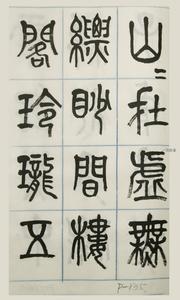 山〻在虛無
縹眇間樓
閣玲瓏五
P-135